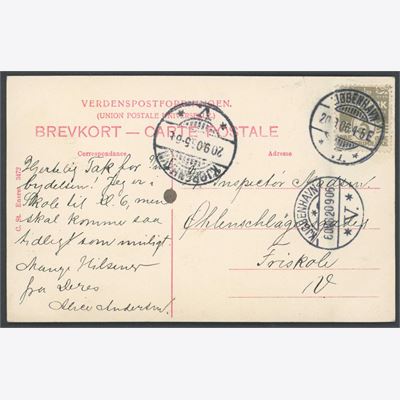 VERDENSPOSTFORENINGEN.
(UNION POSTALE UNIVERSELLE)
BREVKORT — CARTE POSTALE
Correspondance
Adresse
C. St. Eneret 1472
KJØBENHAVN
20.9.06
KJØBENHAVN
20.9.06
KJØBENHAVN
20.9.06
V.
Hjertelig Tak for
bydelsen! Jeg er i
Skole til Kl. 6, men
skal komme saa
tidligt som muligt.
Mange Hilsener
fra Deres
Alice Andersen.
Inspectør Madsen.
Ohlenschlägersgades
Friskole
V